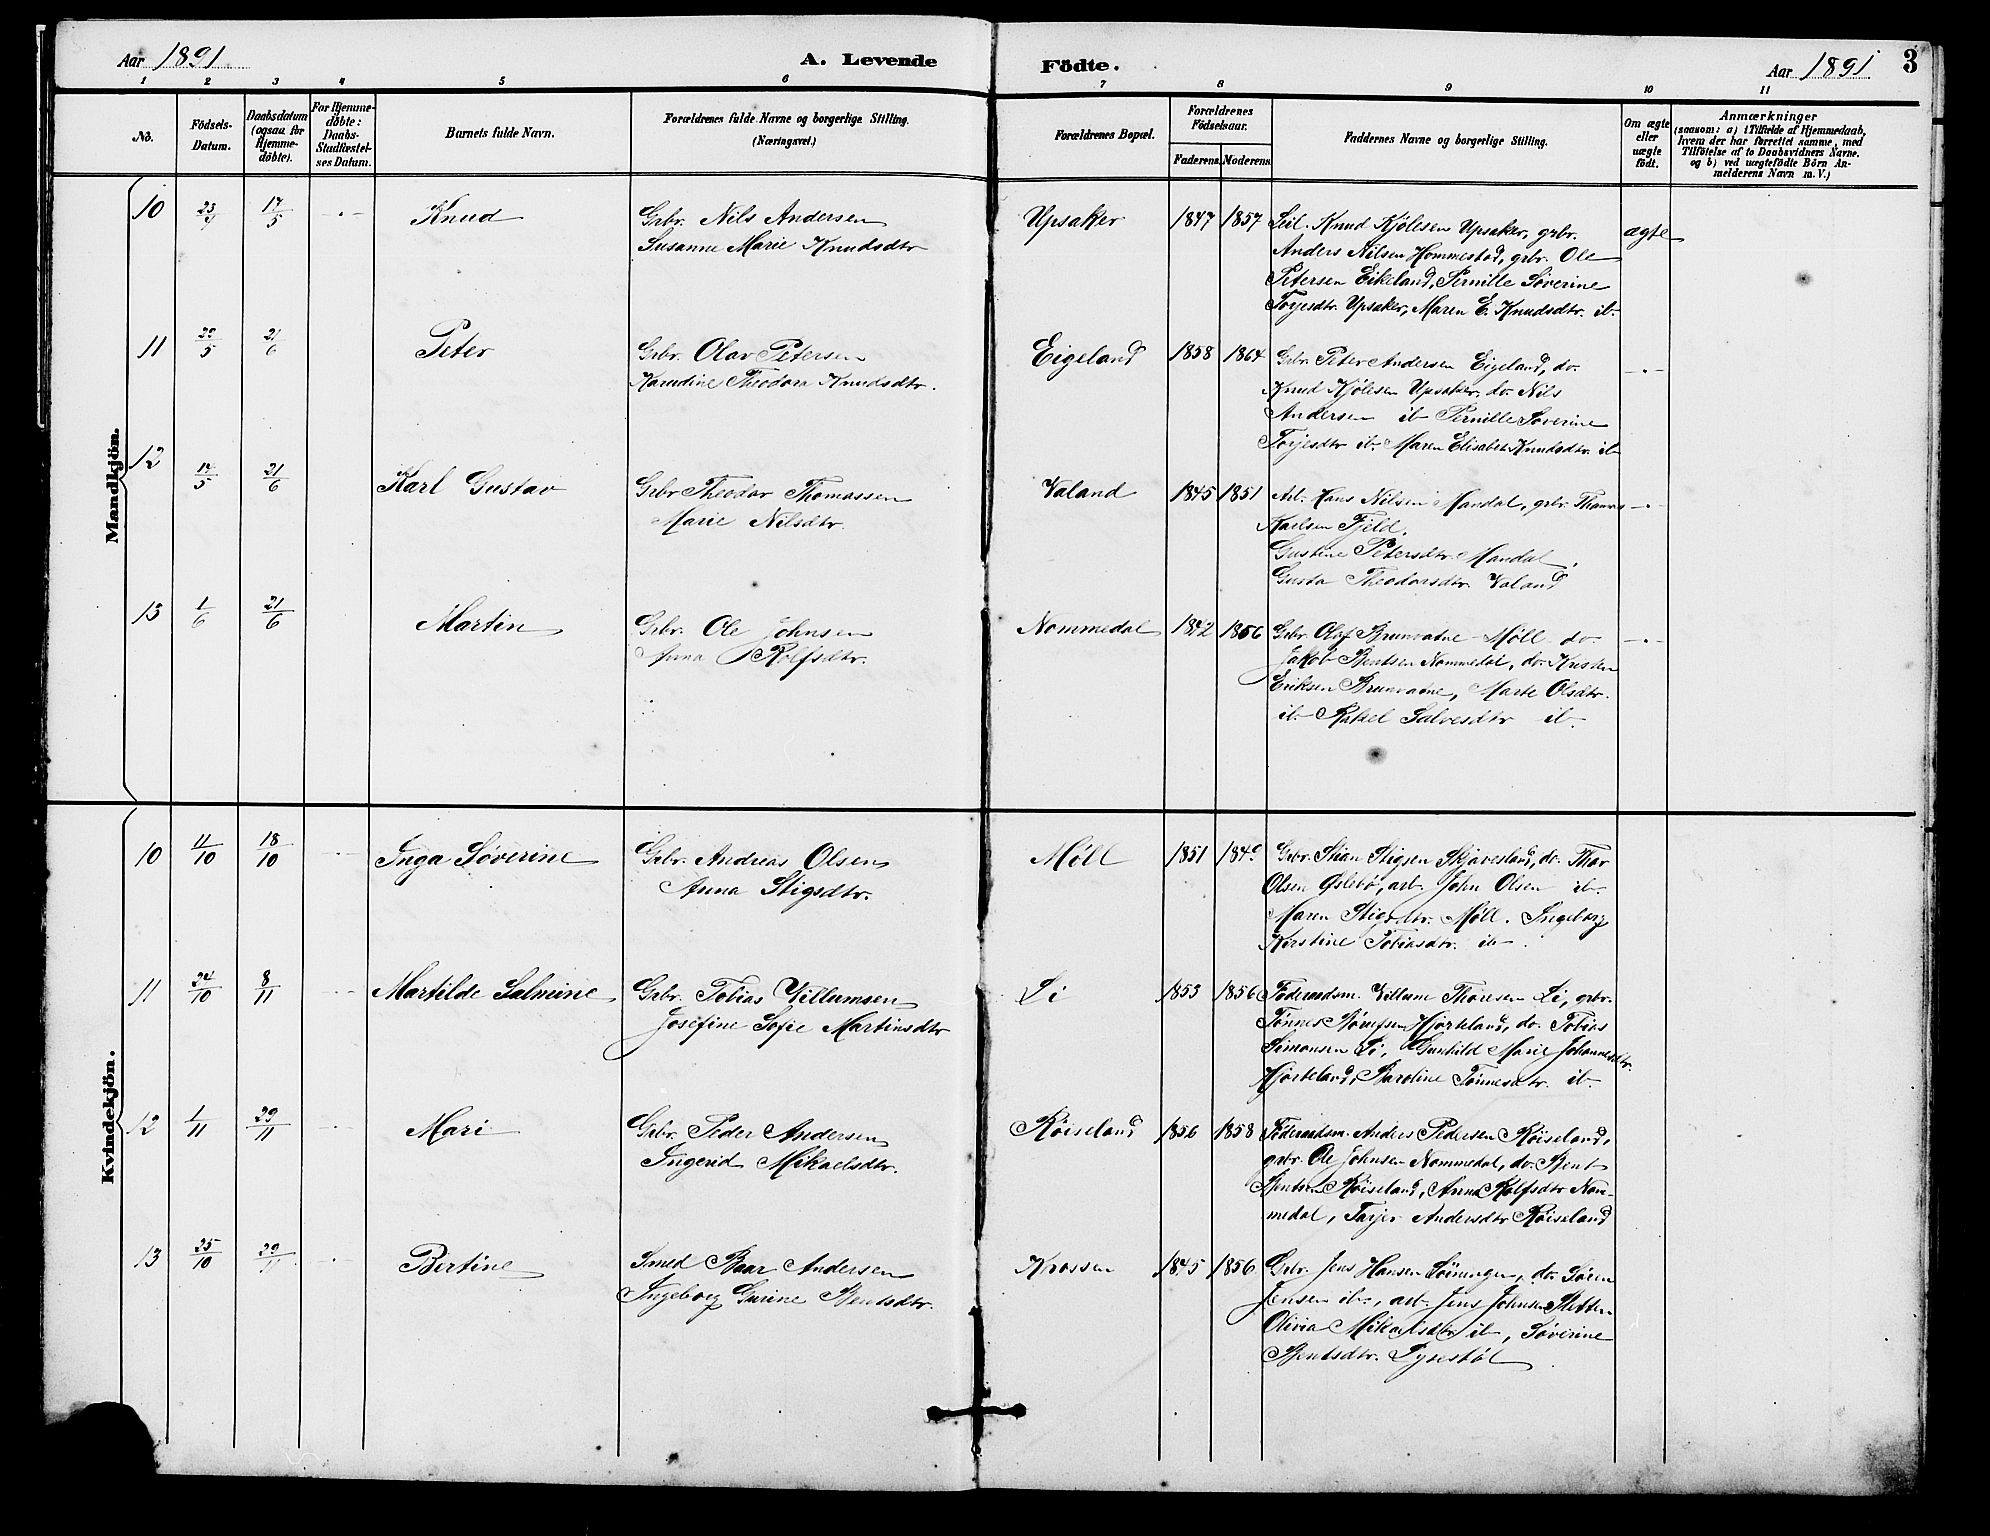 Aar 1891
A. Levende
Födte.
Aar 1891
3
1 2 3 4 5 6 7 8 9 10 11
No.
Födsels-
Datum.
Daabsdatum
(ogsaa for
Hjemme-
döbte).
For Hjemme-
döbte:
Daabs-
Stadfæstel-
ses Datum.
Barnets fulde Navn.
Forældrenes fulde Navne og borgerlige Stilling.
(Næringsvei.)
Forældrenes Bopæl.
Forældrenes
Födselsaar.
Faderens. Moderens.
Faddernes Navne og borgerlige Stilling.
Om ægte
eller
uægte
födt.
Anmærkninger
(saasom: a) i Tilfælde af Hjemmedaab,
hvem der har forrettet samme, med
Tilföielse af to Daabsvidners Navne.
og b) ved uægtefödte Börn An-
melderens Navn m. V.)
Mandkjön.
10 23/4 17/5 Knud
Grbr. Nils Andersen
Susanne Marie Knudsdtr
Upsaker 1847 1857
Seil. Knud Kjølesen Upsaker, grbr.
Anders Nilsen Hommestad, grbr. Ole
Petersen Eikeland, Pernille Søverine
Torjesdtr. Upsaker, Maren E. Knudsdtr. ib.
ægte
11 22/5 21/6 Peter
Grbr. Olav Petersen
Karudine Theodora Knudsdtr.
Eigeland 1858 1864
Grbr. Peter Andersen Eigeland, do.
Knud Kjølesen Upsaker, do. Nils
Andersen ib Pernille Søverine
Torjesdtr ib. Maren Elisabet Knudsdtr. ib
-"-
12 17/5 21/6 Karl Gustav
Grbr Theodor Thomassen
Marie Nilsdtr.
Valand 1845 1851
Arb. Hans Nilsen Mandal, grbr. Thomas
Karlsen Fjeld,
Gustine Petersdtr. Mandal,
Gusta Theodorsdtr. Valand
-"-
13 1/6 21/6 Martin
Grbr. Ole Johnsen
Anna Rolfsdtr.
Nommedal 1842 1856
Grbr. Olaf Brunvatne Møll do.
Jakob Bentsen Nommedal, do. Kristen
Eriksen Brunvatne, Marte Olsdtr.
ib. Rakel Salvesdtr ib.
-"-
Kvindekjön.
10 11/10 18/10 Inga Søverine
Grbr. Andreas Olsen
Anna Stigsdtr.
Møll 1851 1849
Grbr. Stian Stigsen Skjævesland, do. Thor
Olsen Øslebø, arb. John Olsen ib.
Maren Stigsdtr. Møll. Ingeborg
Kirstine Tobiasdtr. ib.
11 24/10 8/11 Martilde Salmine
Grbr. Tobias Villumsen
Josefine Sofie Martinsdtr
Li 1853 1856
Føderaadsm. Villum Thoresen Li, grbr.
Tønnes Hjorteland, do. Tobias
Simonsen Li, Gunhild Marie Johannesdtr.
Hjorteland, Karoline Tønnesdtr. ib.
12 1/11 29/11 Mari
Grbr. Peder Andersen
Ingerid Mikaelsdtr.
Røiseland 1856 1858
Føderaadsm. Anders Pedersen Røiseland,
grbr. Ole Johnsen Nommedal, do. Bent
Bentsen Røiseland, Anna Rolfsdtr Nom-
medal, Tarjer Andersdtr Røiseland
13 25/10 29/11 Bertine
Smed Baar Andersen
Ingeborg Gurine Bentsdtr.
Krossen 1845 1856
Grbr. Jens Hansen do. Søren
Jensen ib., arb. Jens Johnsen Sletten
Olivia Mikaelsdtr ib, Søverine
Bentsdtr.